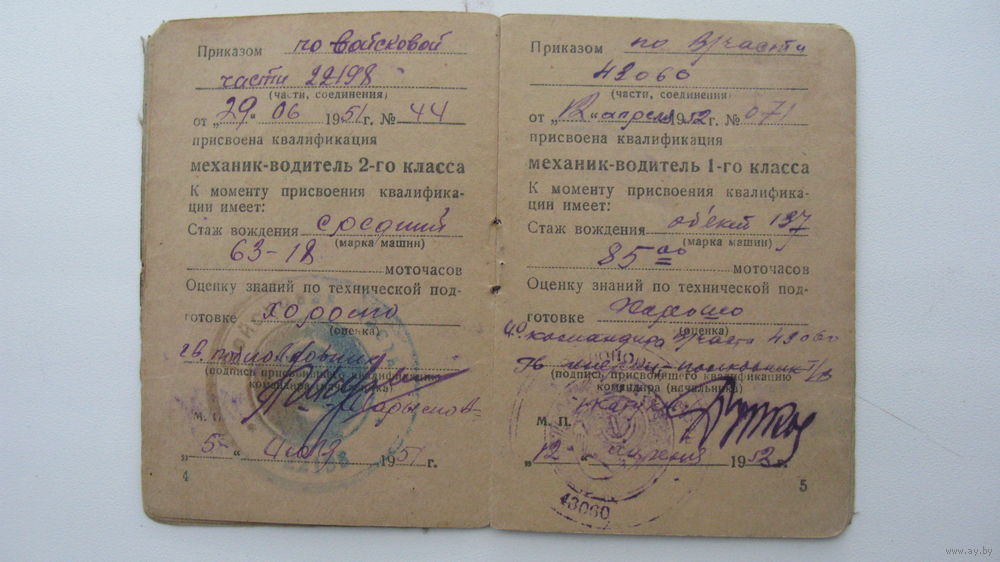 Приказом по войсковой
части 22198
(части, соединения)
от „29" 06 1951 г. № 44
присвоена квалификация
механик-водитель 2-го класса
К моменту присвоения квалифика-
ции имеет:
Стаж вождения средний
(марка машин)
63-18 моточасов
Оценку знаний по технической под-
готовке хорошо
(оценка)
гв. полковник
(подпись присвоившего квалификацию
командира (начальника)
М. П.
„5" 1951 г.
4
Приказом по в/части
42060
(части, соединения)
от „12" апреля 1952 г. № 071
присвоена квалификация
механик-водитель 1-го класса
К моменту присвоения квалифика-
ции имеет:
Стаж вождения объект 137
(марка машин)
85 00 моточасов
Оценку знаний по технической под-
готовке Хорошо
(оценка)
командира в/части 42060
Гв. полковник т/в
(подпись присвоившего квалификацию
командира (начальника)
М. П.
„12" апреля 1952 г.
43060
5
www.ay.by